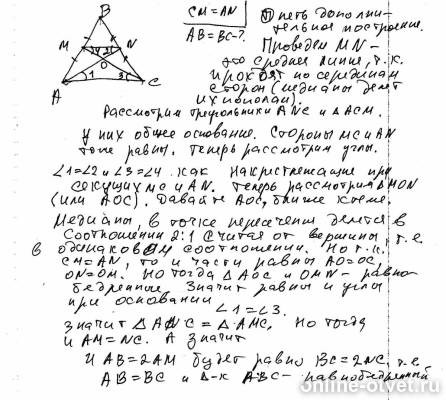 B
CM = AN
AB = BC - ?
Опеть дополни-
тельное построение.
Проведем MN -
это средняя линия, т.к.
проходит по серединам
сторон (медианы делят
их пополам).
M N
O
1 3
A C
Рассмотрим треугольники ANC и ΔACM.
У них общее основание. Стороны MC и AN
тоже равны. Теперь рассмотрим углы.
∠1=∠2 и ∠3=∠4 как накрестлежащие при
секущих MC и AN. Теперь рассмотрим ΔMON
(или AOC). Давайте AOC, ближе к теме.
Медианы, в точке пересечения делятся в
соотношении 2:1 считая от вершины, т.е.
в одинаковом соотношении. Но т.к.
CM=AN, то и части равны AO=OC,
ON=OM. Но тогда ΔAOC и OMN - равно-
бедренные. Значит равны и углы
при основании
∠1=∠3.
Значит ΔANC = ΔAMC. Но тогда
и AM=NC. А значит
и AB=2AM будет равно BC=2NC, т.е.
AB=BC и Δ-к ABC - равнобедренный
online-otvet.ru